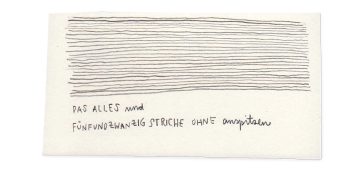 DAS ALLES und
FÜNFUNDZWANZIG STRICHE OHNE anspitzen